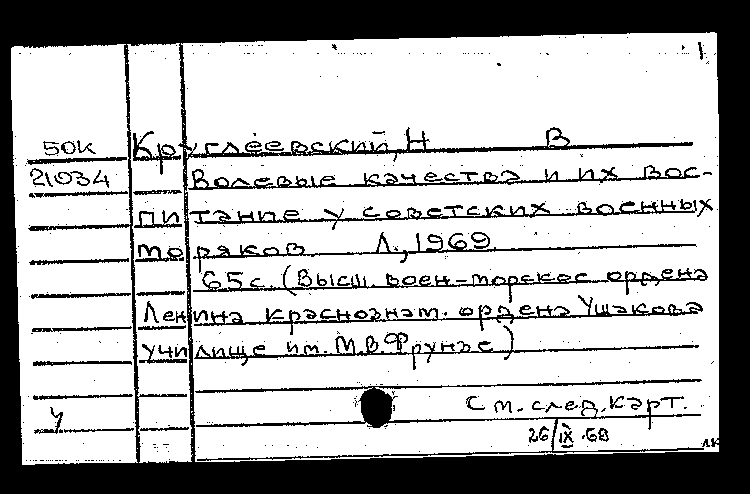 1
50к Круглеевский, Н В
21034 Волевые качества и их вос-
питание у советских военных
моряков. Л., 1969
65с. (Высш. воен-морское ордена
Ленина краснознам. ордена Ушакова
училище им. М.В.Фрунзе)
У См. след. карт.
26/IX-69